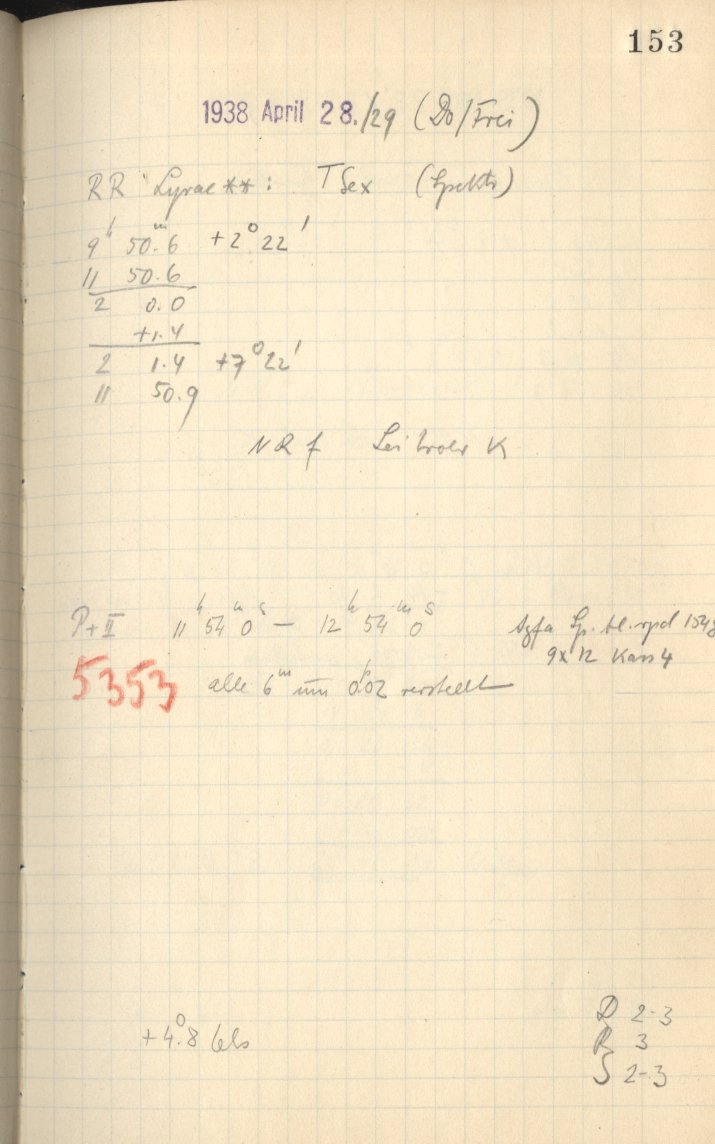 153
1938 April 28./29 (Do/Frei)
RR Lyrae **: T Sex (Spektr)
9ʰ 50ᵐ.6 +2° 22'
11 50.6
2 0.0
+1.4
2 1.4 +7° 22'
11 50.9
N R f K
P+II 11ʰ 54ᵐ 0ˢ — 12ʰ 54ᵐ 0ˢ Agfa Sp. bl. rpd
9x12 Kass 4
5353 alle 6ᵐ um 0.02 verstellt
+4°.8 Cels
D 2-3
R 3
S 2-3